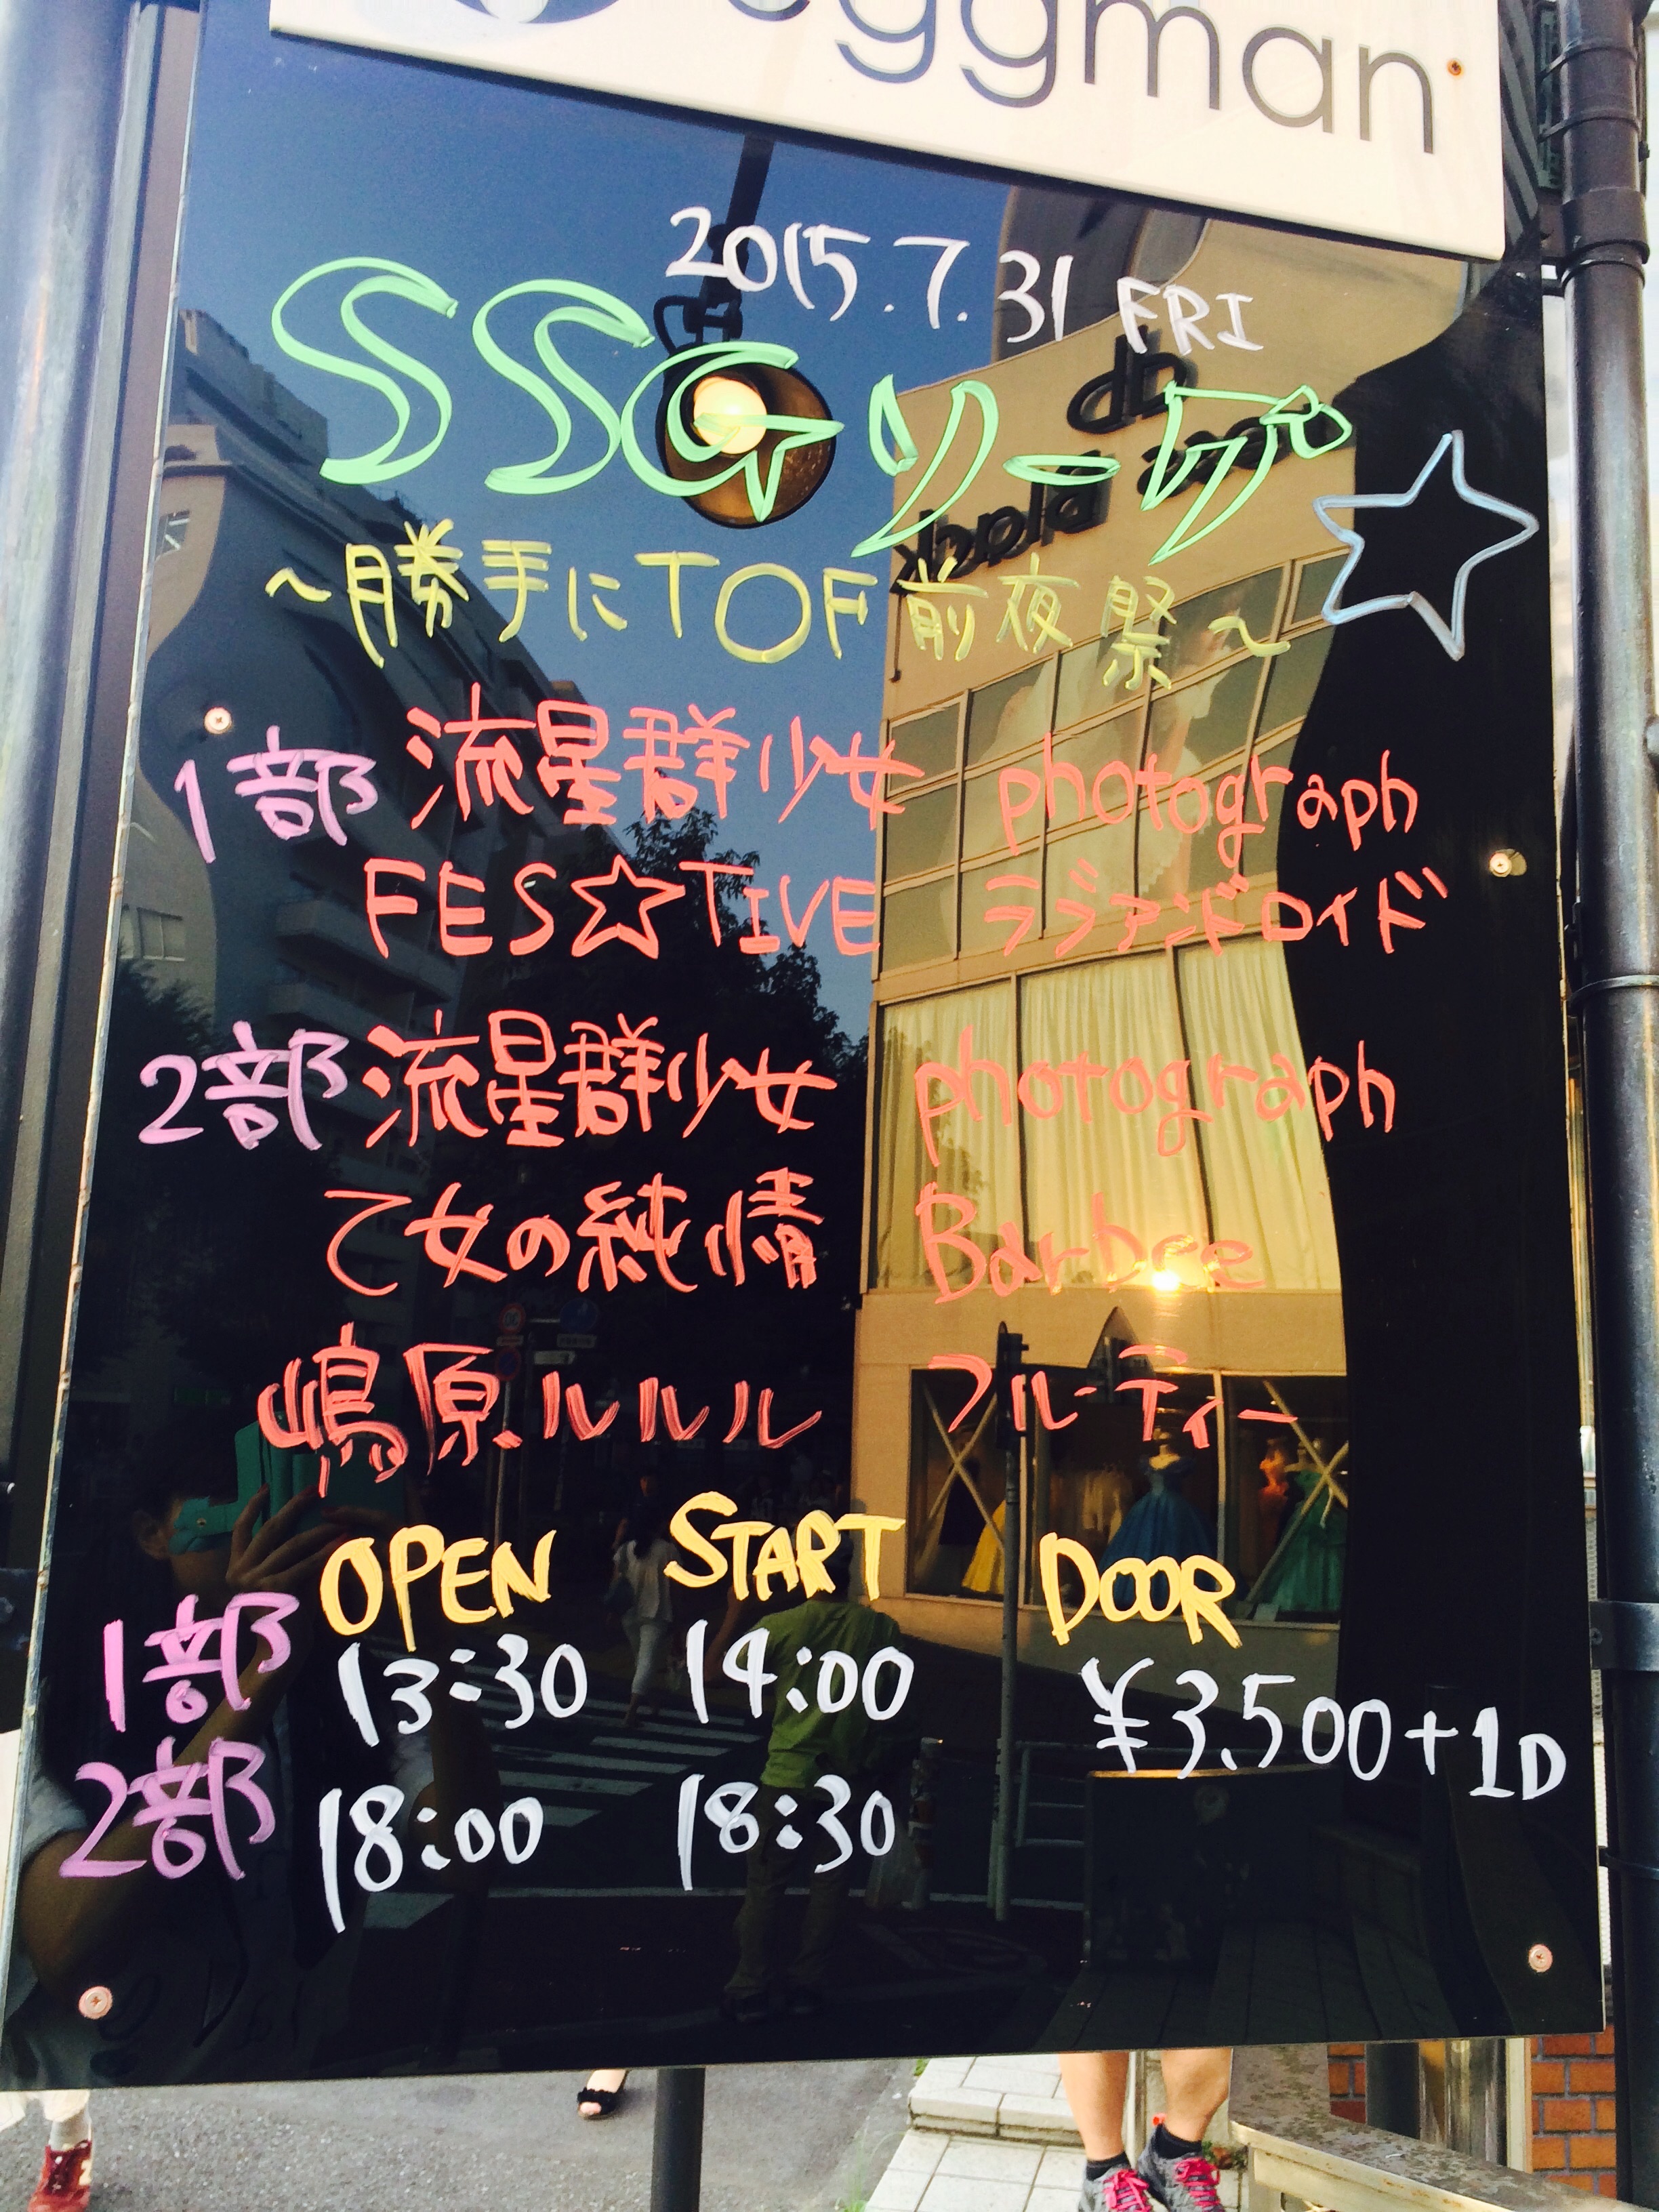 eggman
2015.7.31 FRI
SSGリーグ
～勝手にTOF前夜祭～
1部 流星群少女 photograph
FES☆TIVE ラブアンドロイド
2部 流星群少女 photograph
乙女の純情 Barbee
嶋原ルルル フルーティー
OPEN START DOOR
1部 13:30 14:00 ¥3,500+1D
2部 18:00 18:30